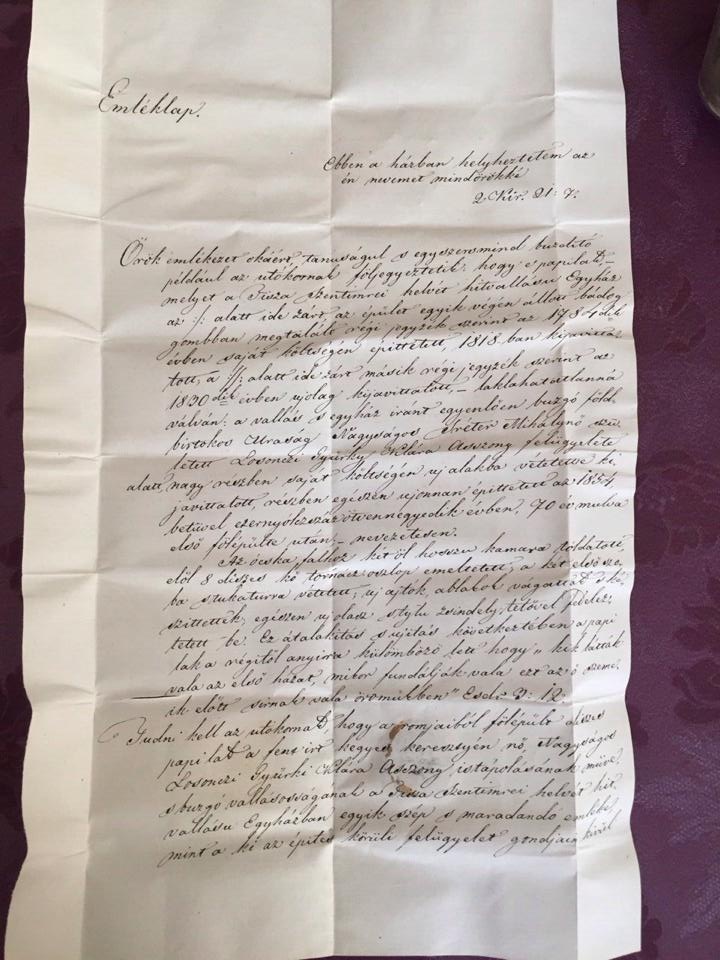 Emléklap.
Ebben a házban helyheztetem az
én nevemet mindörökké
2 Kir. 21: 7.
Örök emlékezet okáért, tanuságul s egyszersmind buzditó
például az utókornak följegyeztetik: hogy e papilak,
melyet a Tisza Szentimrei helvét hitvallásu Egyház
az ·/· alatt ide zárt az épület egyik végén állott bádog
gombban megtalált régi jegyzék szerint az 1784dik
évben saját költségén épittetett 1818ban kijavitta
tott, a alatt ide zárt másik régi jegyzék szerint az
1830dik évben ujolag kijavittatott, – laklahatatlanná
válván: a vallás s egyház iránt egyenlően buzgó föld,
birtokos Uraság Nagyságos Mihályné szü
letett Losonczi Gyürky Klára Asszony felügyelete
alatt, nagy részben saját költségén, uj alakba vétetette ki,
javittatott, részben egészen ujonnan épittetett az 1854,
betüvel ezernyolczszáz ötvennegyedik évben, 70 év mulva
első fölépülte után; – nevezetesen.
Az ócska falhoz két öl hosszu kamara toldatott,
elöl 8 diszes kő tornácz oszlop emeltetett, a két első szo,
ba stukaturra vétetett, uj ajtók, ablakok vágattak s ké
szittettek, egészen uj olasz stylu zsindely tetővel fedelez,
tetett be. Ez átalakitás s ujitás következtében a papi
lak a régitől anyira külömböző lett hogy „kik látták
vala az első házat, mikor fundálják vala ezt az ő szeme,
ik előtt sirnak vala örömükben" Esdr. 3: 12.
Tudni kell az utókornak, hogy a romjaiból fölépült diszes
papilak a fenn irt kegyes keresztyén nő, Nagyságos
Losonczi Gyürki Klára Asszony istápolásának müve,
s buzgó vallásosságának a Tisza Szentimrei helvét hit,
vallásu Egyházban egyik szép s maradandó emléke,
mint a ki az épités körüli felügyelet gondjain kivül